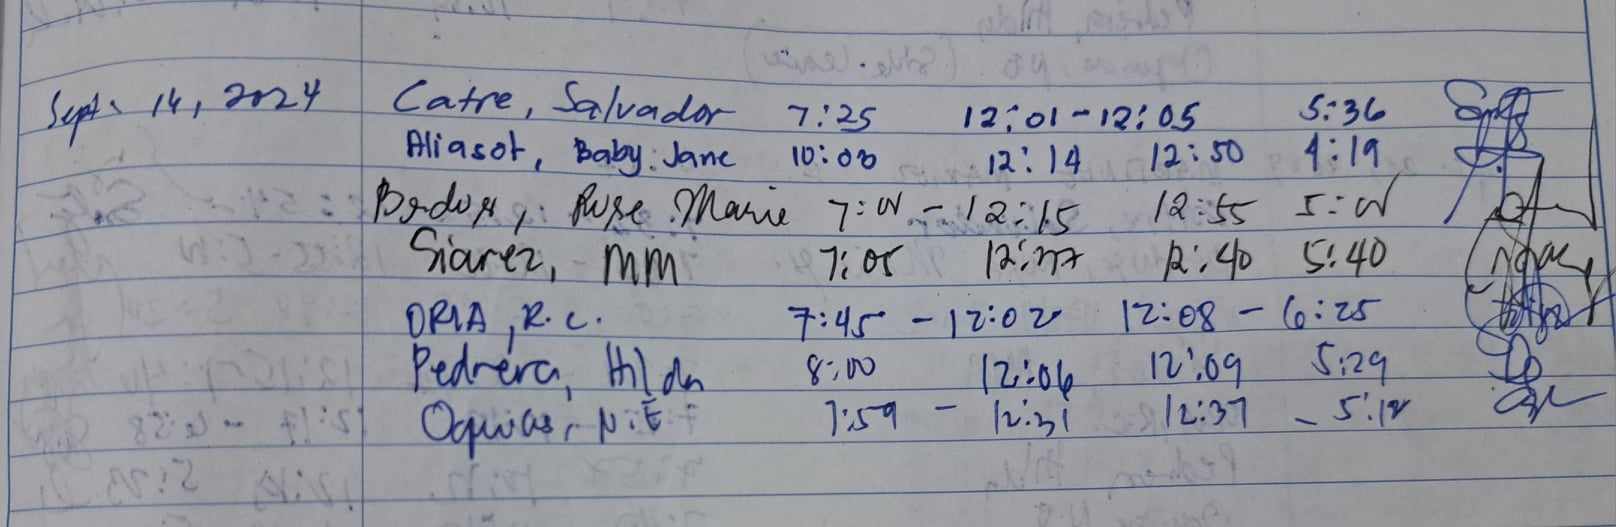 Sept. 14, 2024 Catre, Salvador 7:25 12:01-12:05 5:36
Aliasot, Baby Jane 10:00 12:14 12:50 4:19
Rose Marie 7:00 - 12:15 12:55 5:00
Siarez, MM 7:05 12:37 12:40 5:40
ORIA, R.C. 7:45 - 12:02 12:08 - 6:25
Pedrera, Hilda 8:00 12:06 12:09 5:29
N.E 7:59 - 12:31 12:37 - 5:18